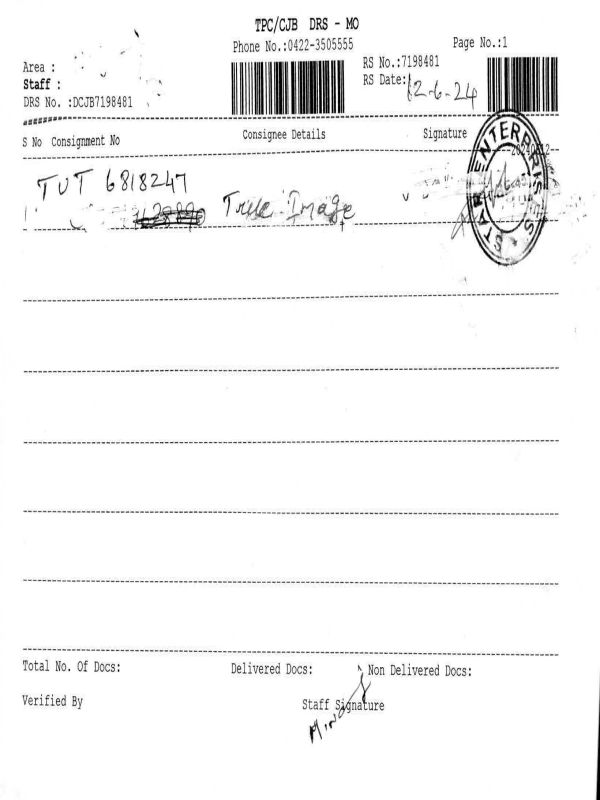 TPC/CJB DRS - MO
Phone No.:0422-3505555
Page No.:1
Area :
Staff :
DRS No. :DCJB7198481
RS No.:7198481
RS Date: 12-6-24
S No Consignment No Consignee Details Signature
TUT 6818247
True Image
STAR ENTERPRISES
Total No. Of Docs: Delivered Docs: Non Delivered Docs:
Verified By Staff Signature